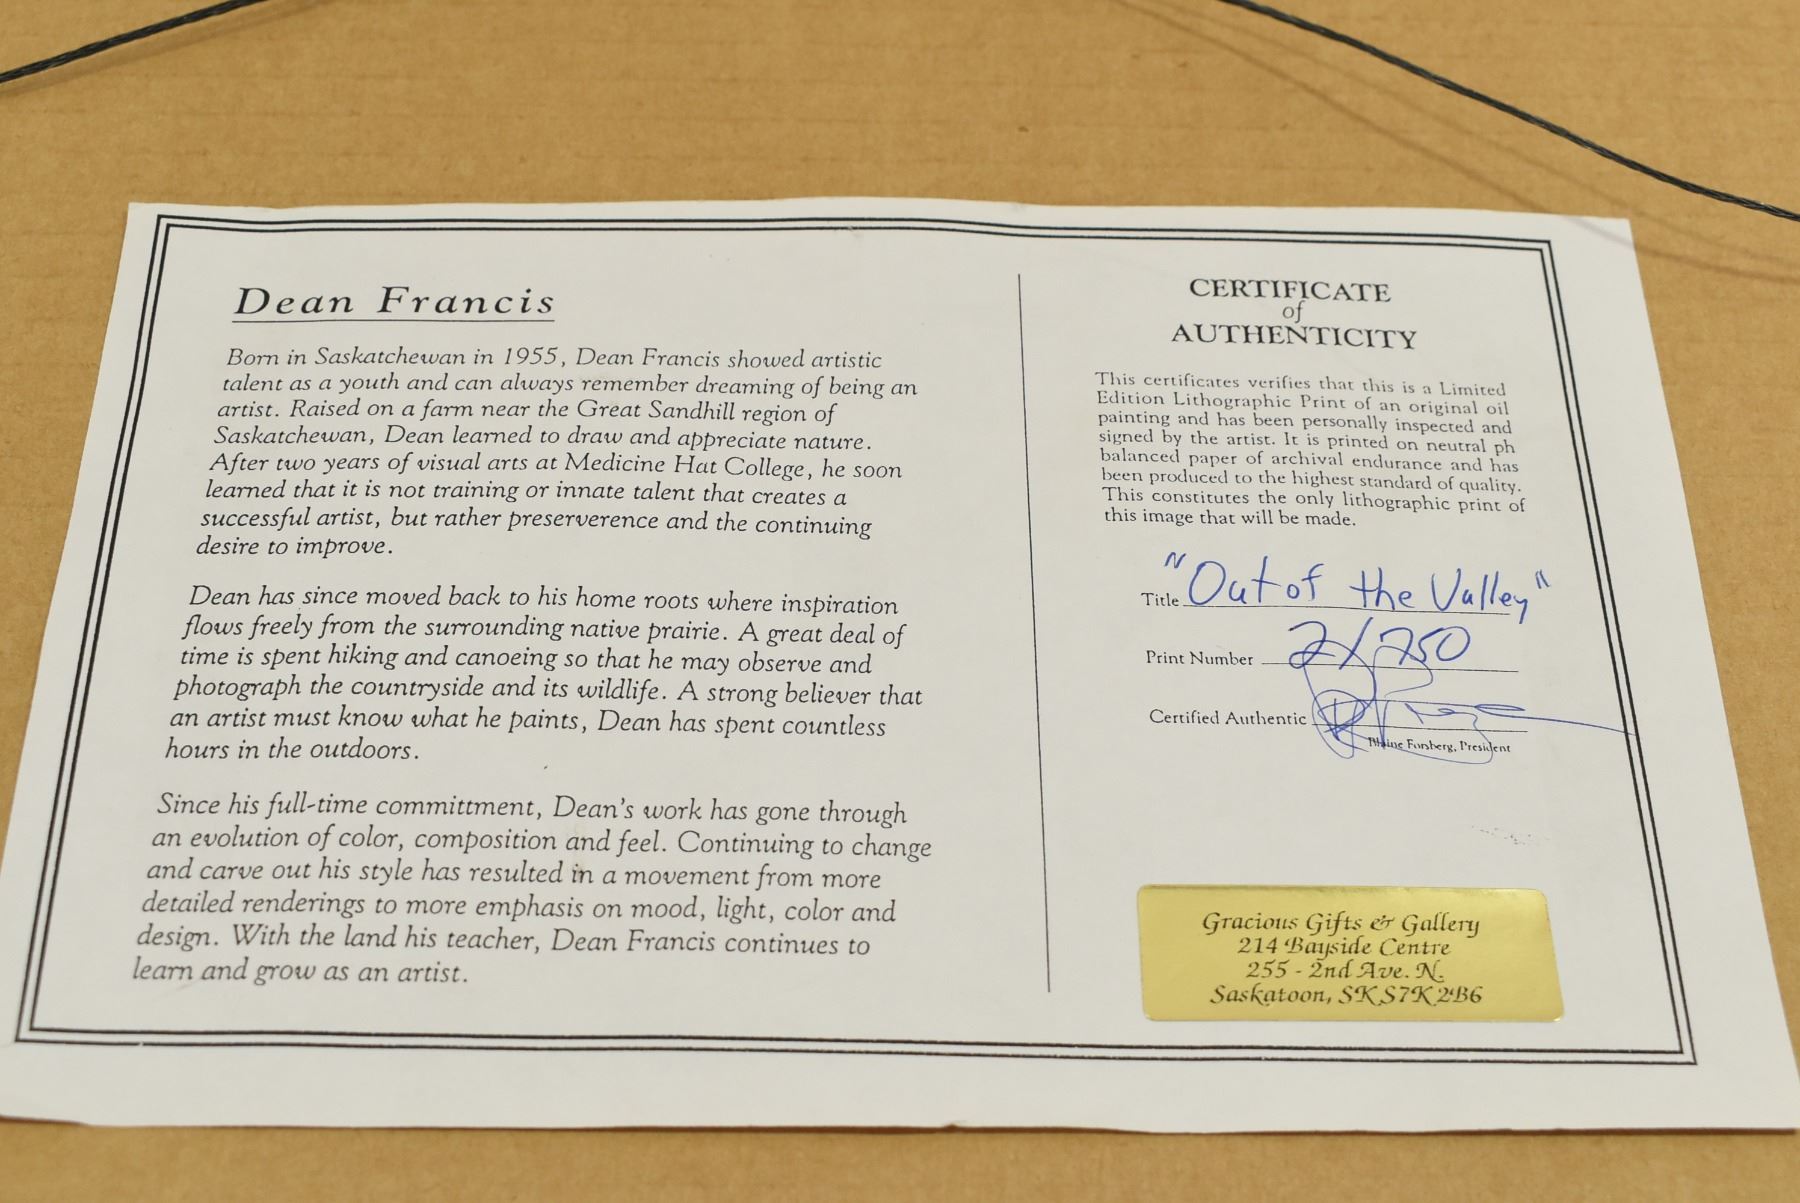 Dean Francis
Born in Saskatchewan in 1955, Dean Francis showed artistic
talent as a youth and can always remember dreaming of being an
artist. Raised on a farm near the Great Sandhill region of
Saskatchewan, Dean learned to draw and appreciate nature.
After two years of visual arts at Medicine Hat College, he soon
learned that it is not training or innate talent that creates a
successful artist, but rather preserverence and the continuing
desire to improve.
Dean has since moved back to his home roots where inspiration
flows freely from the surrounding native prairie. A great deal of
time is spent hiking and canoeing so that he may observe and
photograph the countryside and its wildlife. A strong believer that
an artist must know what he paints, Dean has spent countless
hours in the outdoors.
Since his full-time committment, Dean's work has gone through
an evolution of color, composition and feel. Continuing to change
and carve out his style has resulted in a movement from more
detailed renderings to more emphasis on mood, light, color and
design. With the land his teacher, Dean Francis continues to
learn and grow as an artist.
CERTIFICATE
of
AUTHENTICITY
This certificates verifies that this is a Limited
Edition Lithographic Print of an original oil
painting and has been personally inspected and
signed by the artist. It is printed on neutral ph
balanced paper of archival endurance and has
been produced to the highest standard of quality.
This constitutes the only lithographic print of
this image that will be made.
Title "Out of the Valley"
Print Number 2/250
Certified Authentic
Blaine Forsberg, President
Gracious Gifts & Gallery
214 Bayside Centre
255 - 2nd Ave. N.
Saskatoon, SK S7K 2B6